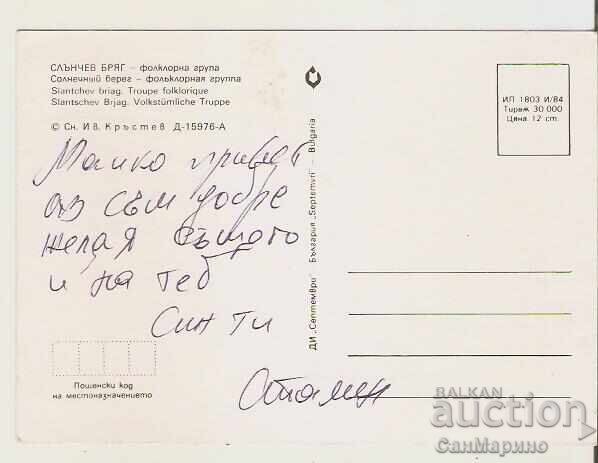 СЛЪНЧЕВ БРЯГ – фолклорна група
Солнечный берег – фольклорная группа
Slantchev briag. Troupe folklorique
Slantschev Brjag. Volkstümliche Truppe
© Сн. Ив. Кръстев Д-15976-А
Майко привет
аз съм добре
желая същото
и на теб
Син ти
Стамен
Пощенски код
на местоназначението
ДИ „Септември" България „Septemvri" – Bulgaria
ИП 1803 И/84
Тираж 30 000
Цена 12 ст.
BALKAN
auction
СанМарино